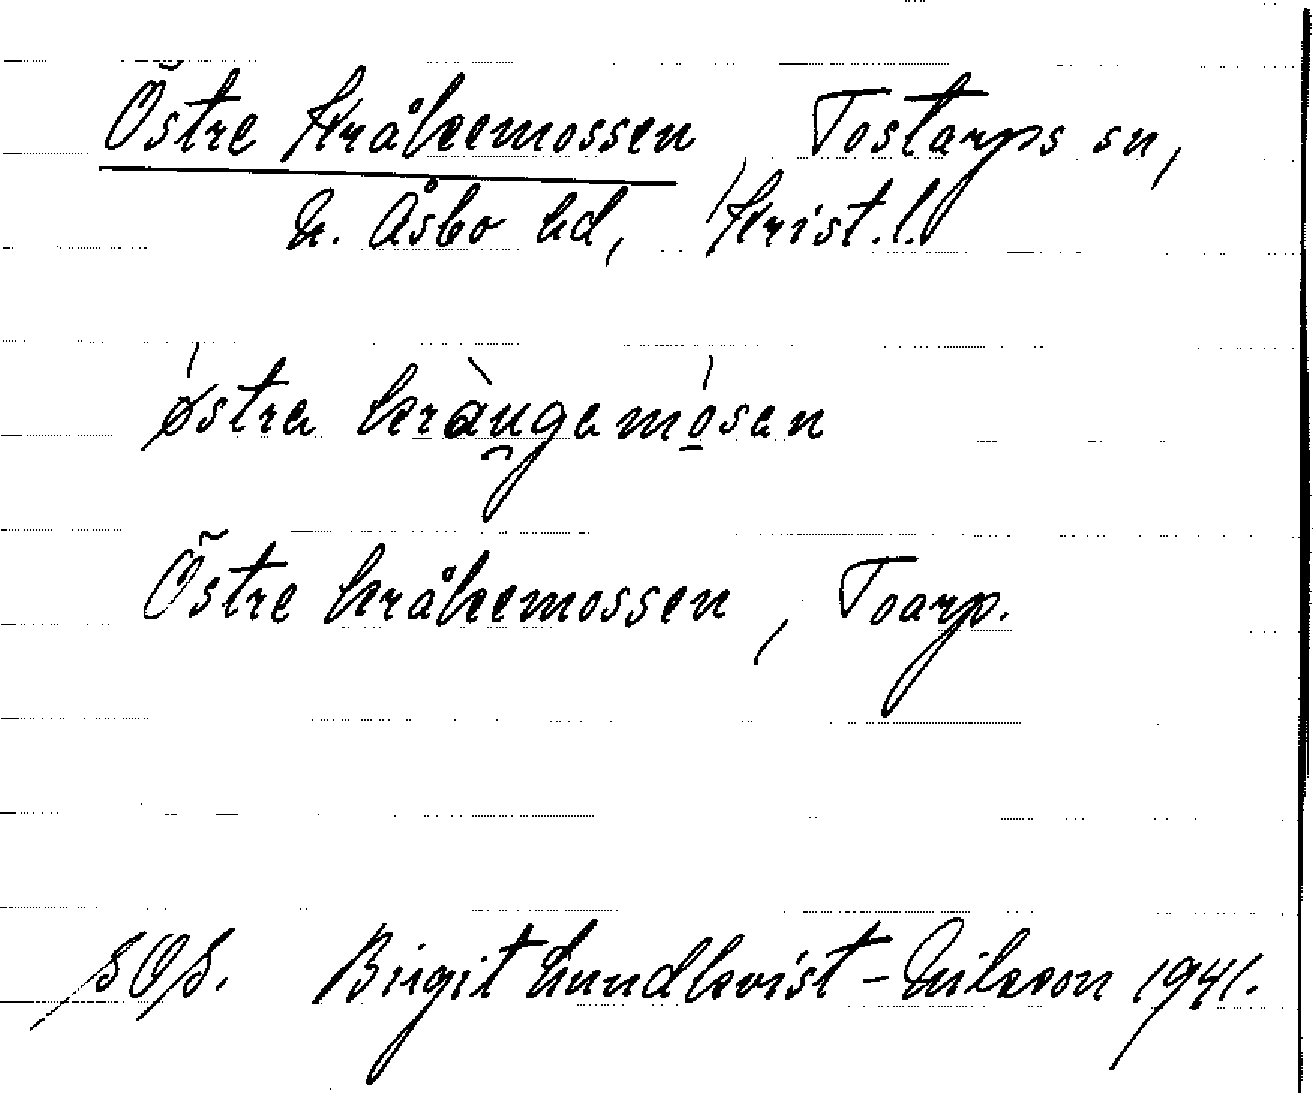 Östre kråkemossen, Tostarps sn,
N. Åsbo hd, Krist. l.
østra kràu̯gamósan
Östre kråkemossen, Toarp.
SOS. Birgit Lundkvist-Nilsson 1941.